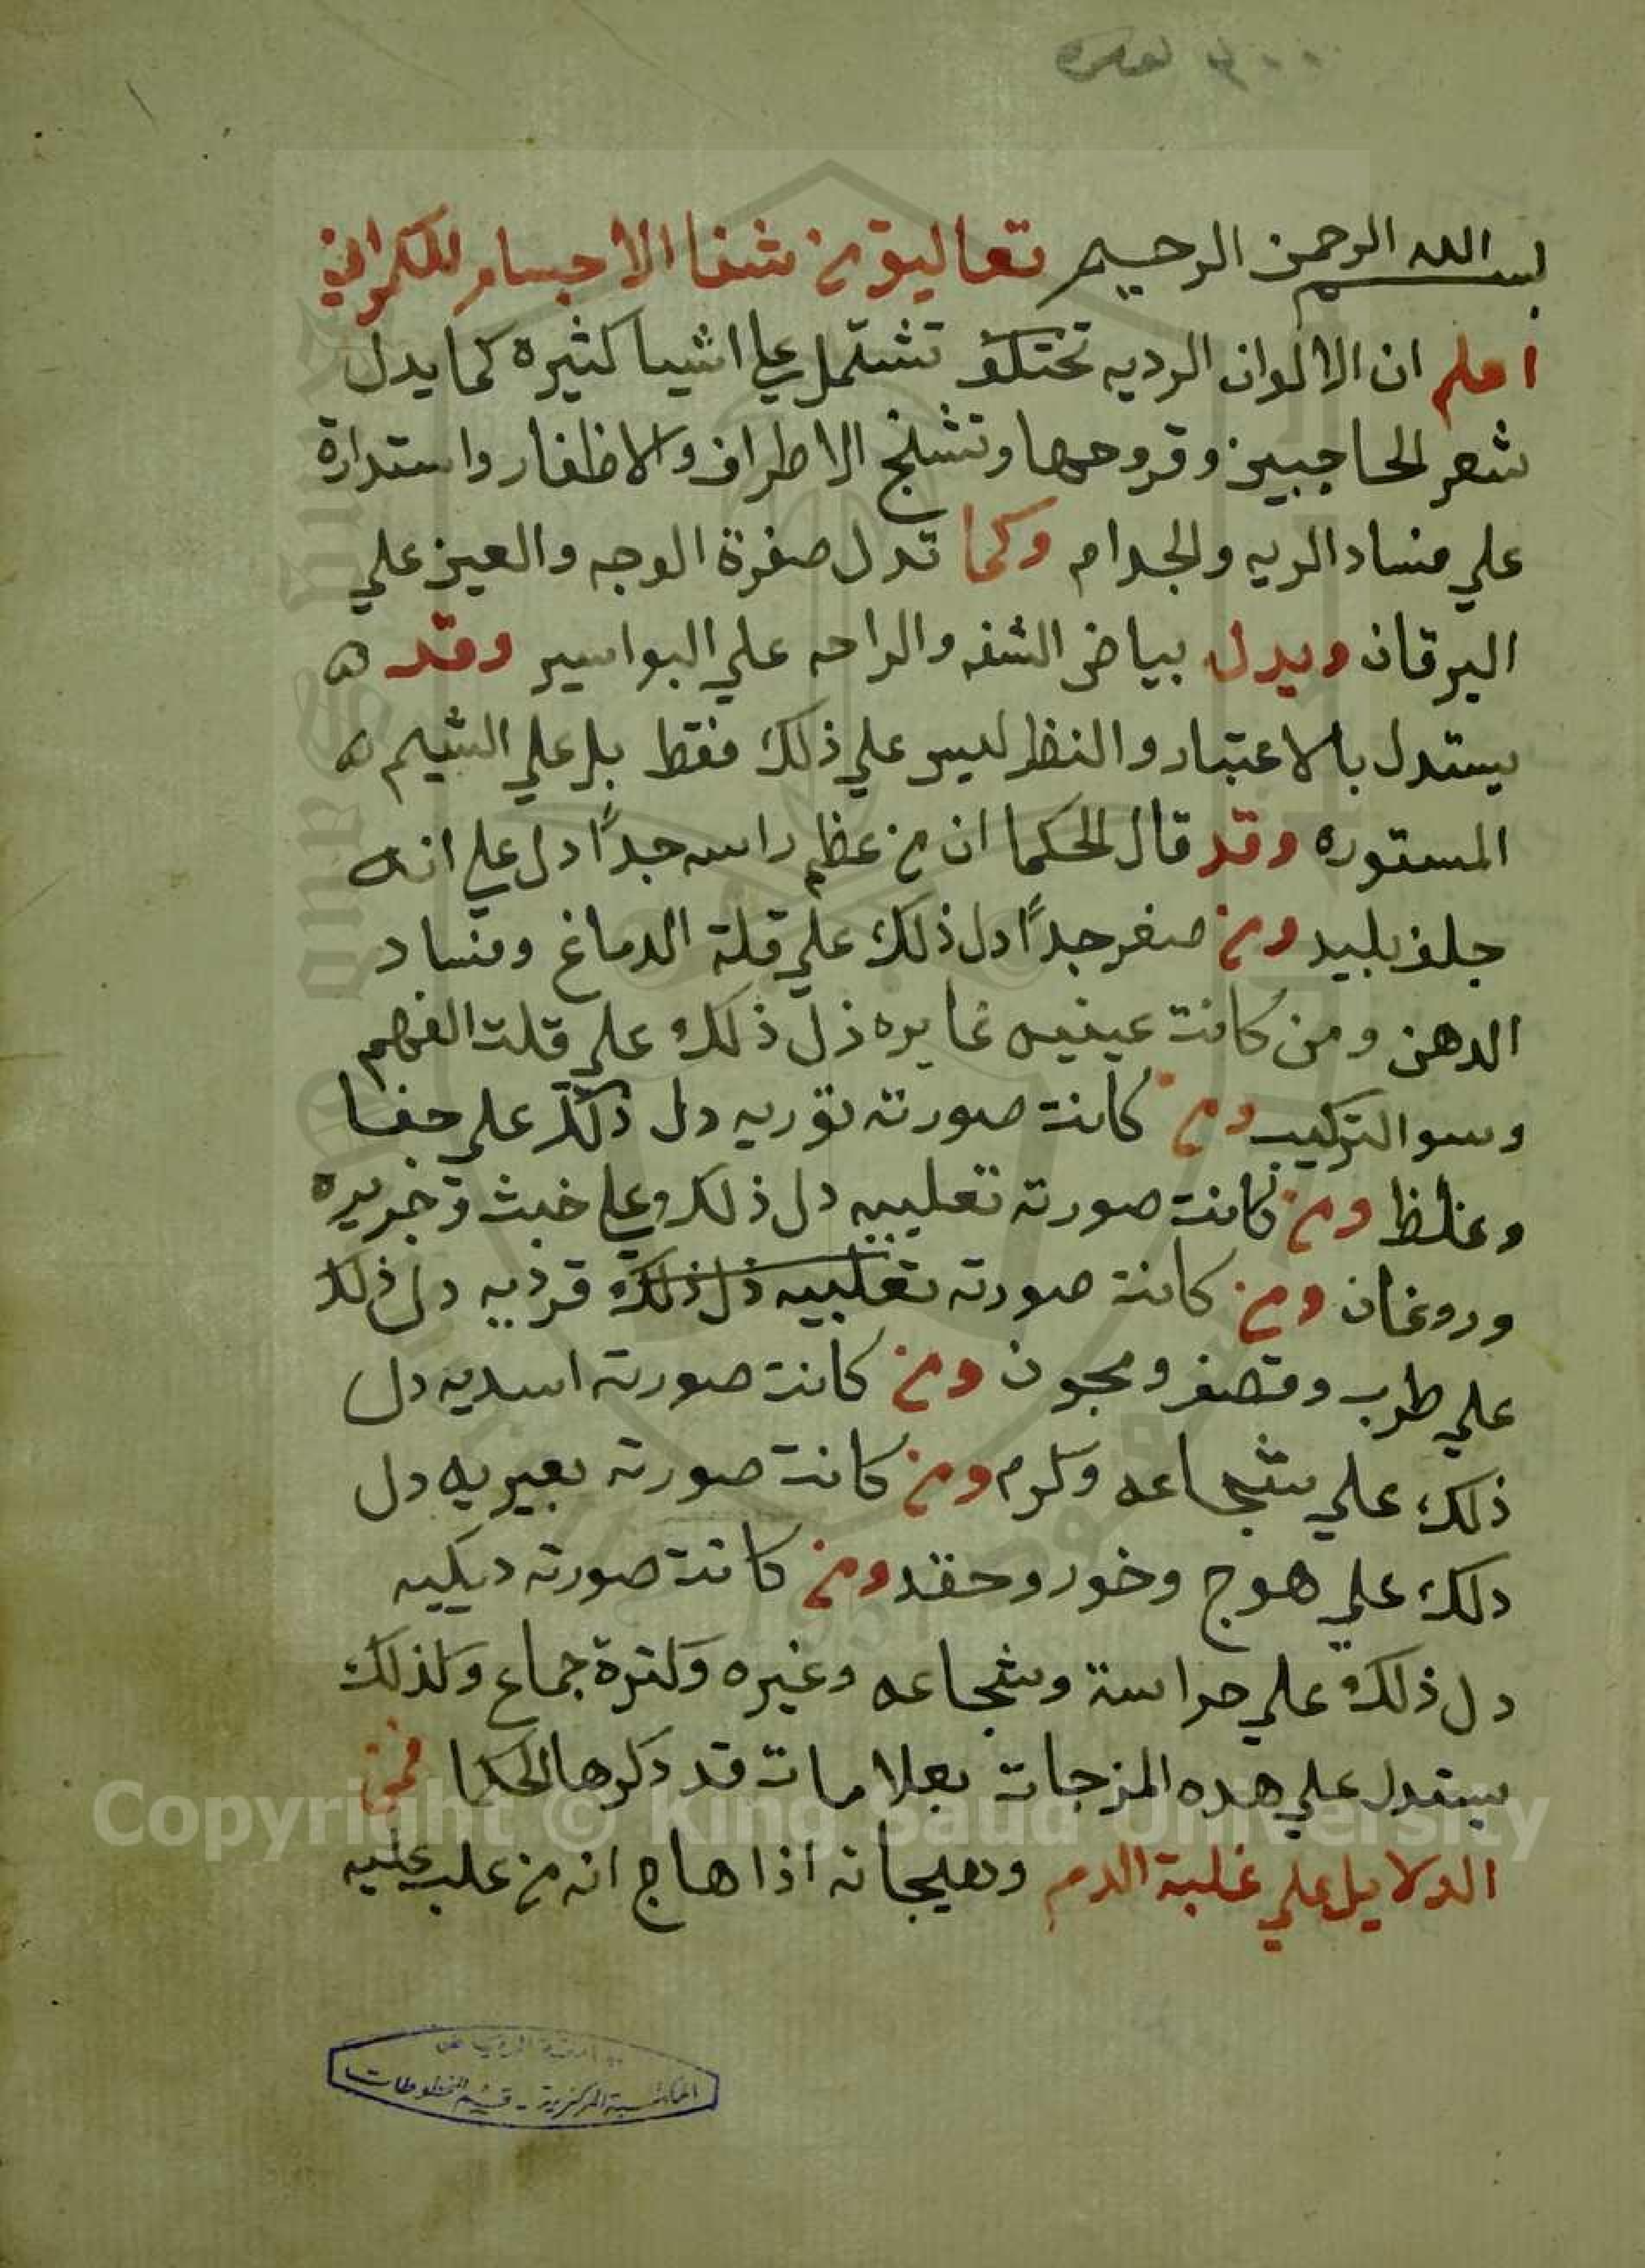 بسم الله الرحمن الرحيم تعاليق من شفا الاجسام للكمراني
اعلم ان الالوان الرديه تختلف تشتمل علي اشيا كثيره كما يدل
شعر الحاجبين وقروحها وتشنج الاطراف والاظفار واستدارة
علي فساد الريه والجدام وكما تدل صفرة الوجه والعين علي
اليرقان ويدل بياض الشفه والراحه علي البواسير وقد ه
يستدل بالاعتبار والنظر ليس علي ذلك فقط بل علي الشيم ه
المستوره وقد قال الحكما ان من عظم راسه جدًا دل علي انه
جلف بليد ومن صغر جدًا دل ذلك علي قلة الدماغ وفساد
الدهن ومن كانت عينيه غايره ذل ذلك علي قلت الفهم
وسو التركيب ومن كانت صورته ثوريه دل ذلك علي جفا
وغلظ ومن كانت صورته تعلبيه دل ذلك علي خبث وخربره
وروغان ومن كانت صورته تعلبيه ذل ذلك قرديه دل ذلك
علي طرب وقصف ومجون ومن كانت صورته اسديه دل
ذلك علي شجاعه وكرم ومن كانت صورته بعيريه دل
دلك علي هوج وخور وحقد ومن كانت صورته ديكيه
دل ذلك علي حراسة وشجاعه وغيره وكثرة جماع وكذلك
يستدل علي هده المزجات بعلامات قد دكرها الحكما فمن
الدلايل علي غلبة الدم وهيجانه اذا هاج انه من علب عليه
المكتبة المركزية - قسم المخطوطات
Copyright © King Saud University
1957